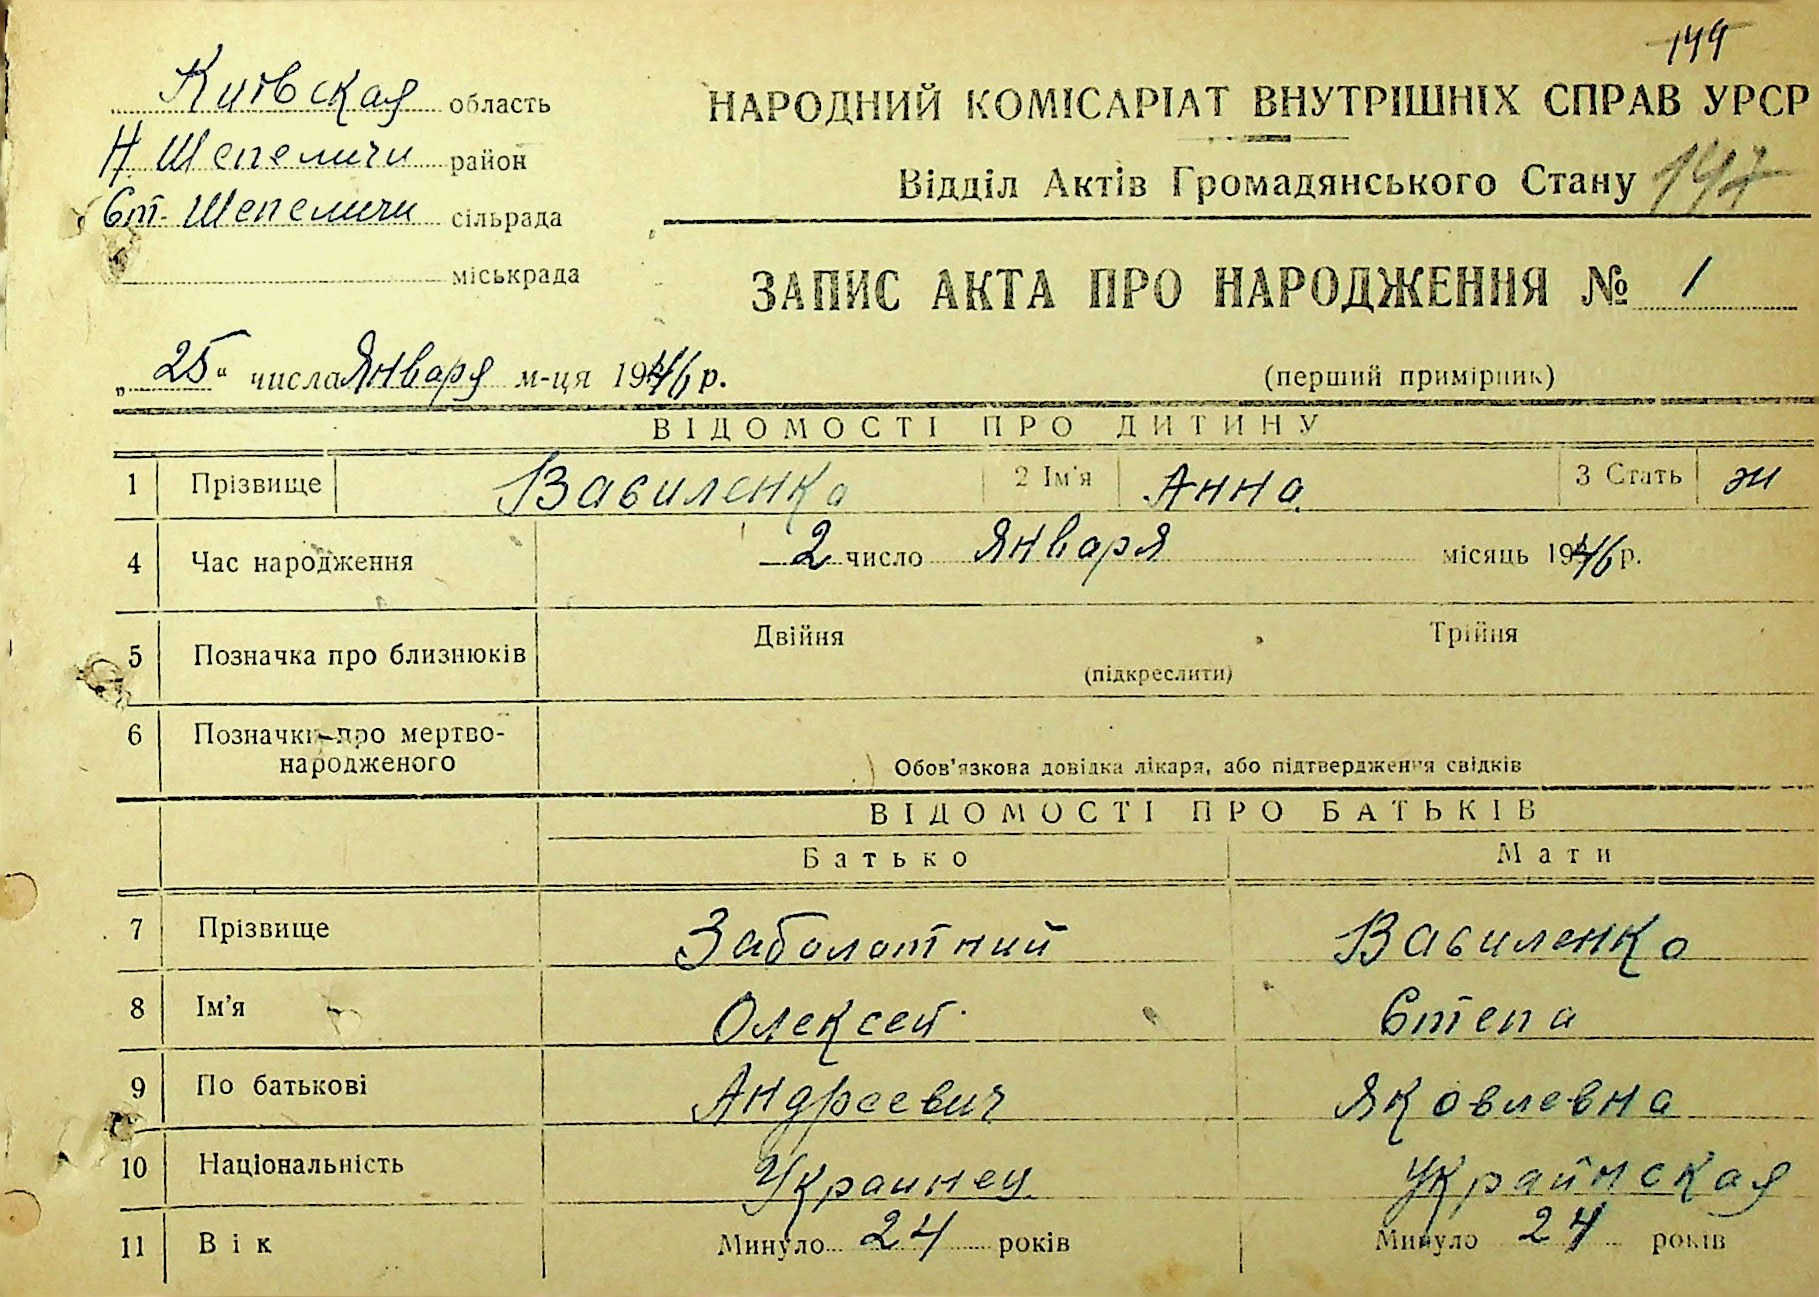 144
Київская область
Н. Шепеличи район
Ст. Шепеличи сільрада
міськрада
НАРОДНИЙ КОМІСАРІАТ ВНУТРІШНІХ СПРАВ УРСР
Відділ Актів Громадянського Стану 147
ЗАПИС АКТА ПРО НАРОДЖЕННЯ № 1
„25“ числа Января м-ця 1946 р.
(перший примірник)
ВІДОМОСТІ ПРО ДИТИНУ
1 Прізвище Василенко 2 Ім'я Анна 3 Стать ж
4 Час народження 2 число Января місяць 1946 р.
5 Позначка про близнюків Двійня Трійня
(підкреслити)
6 Позначки про мертво-
народженого Обов'язкова довідка лікаря, або підтвердження свідків
ВІДОМОСТІ ПРО БАТЬКІВ
Батько Мати
7 Прізвище Заболотний Василенко
8 Ім'я Олексей Степа
9 По батькові Андреевич Яковлевна
10 Національність Украинец Украинская
11 Вік Минуло 24 років Минуло 24 років